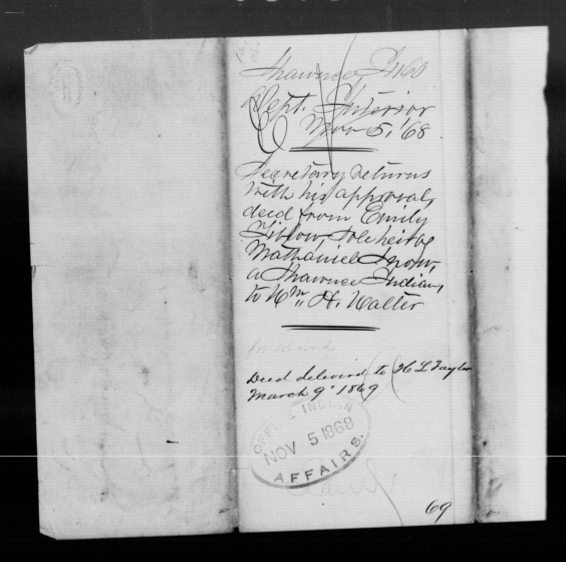 Shawnee, I 160
Dept. Interior
Nov 5, '68
Secretary returns
with his approval,
deed from Emily
sole heir of
Nathaniel
a Shawnee Indian,
to Wm. H. Walter
Deed delivered to H L Taylor
March 9" 1869
OFFICE INDIAN
NOV 5 1868
AFFAIRS.
69